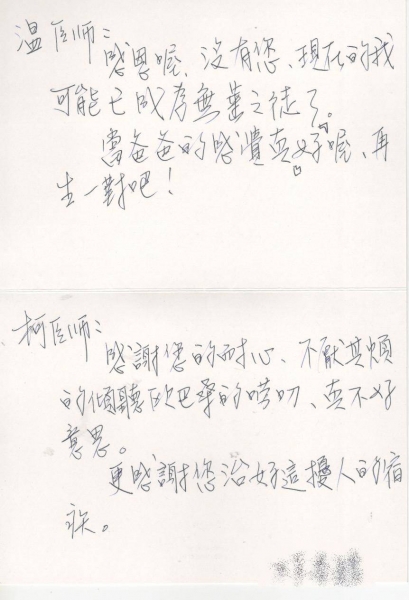 温医师：
感恩喔、没有您、現在的我
可能已成為無業之徒了。
當爸爸的感覺真好喔、再
生一對吧！
柯医师：
感謝您的耐心、不厭其煩
的傾聽歐巴桑的嘮叨、真不好
意思。
更感謝您治好這擾人的宿
疾。